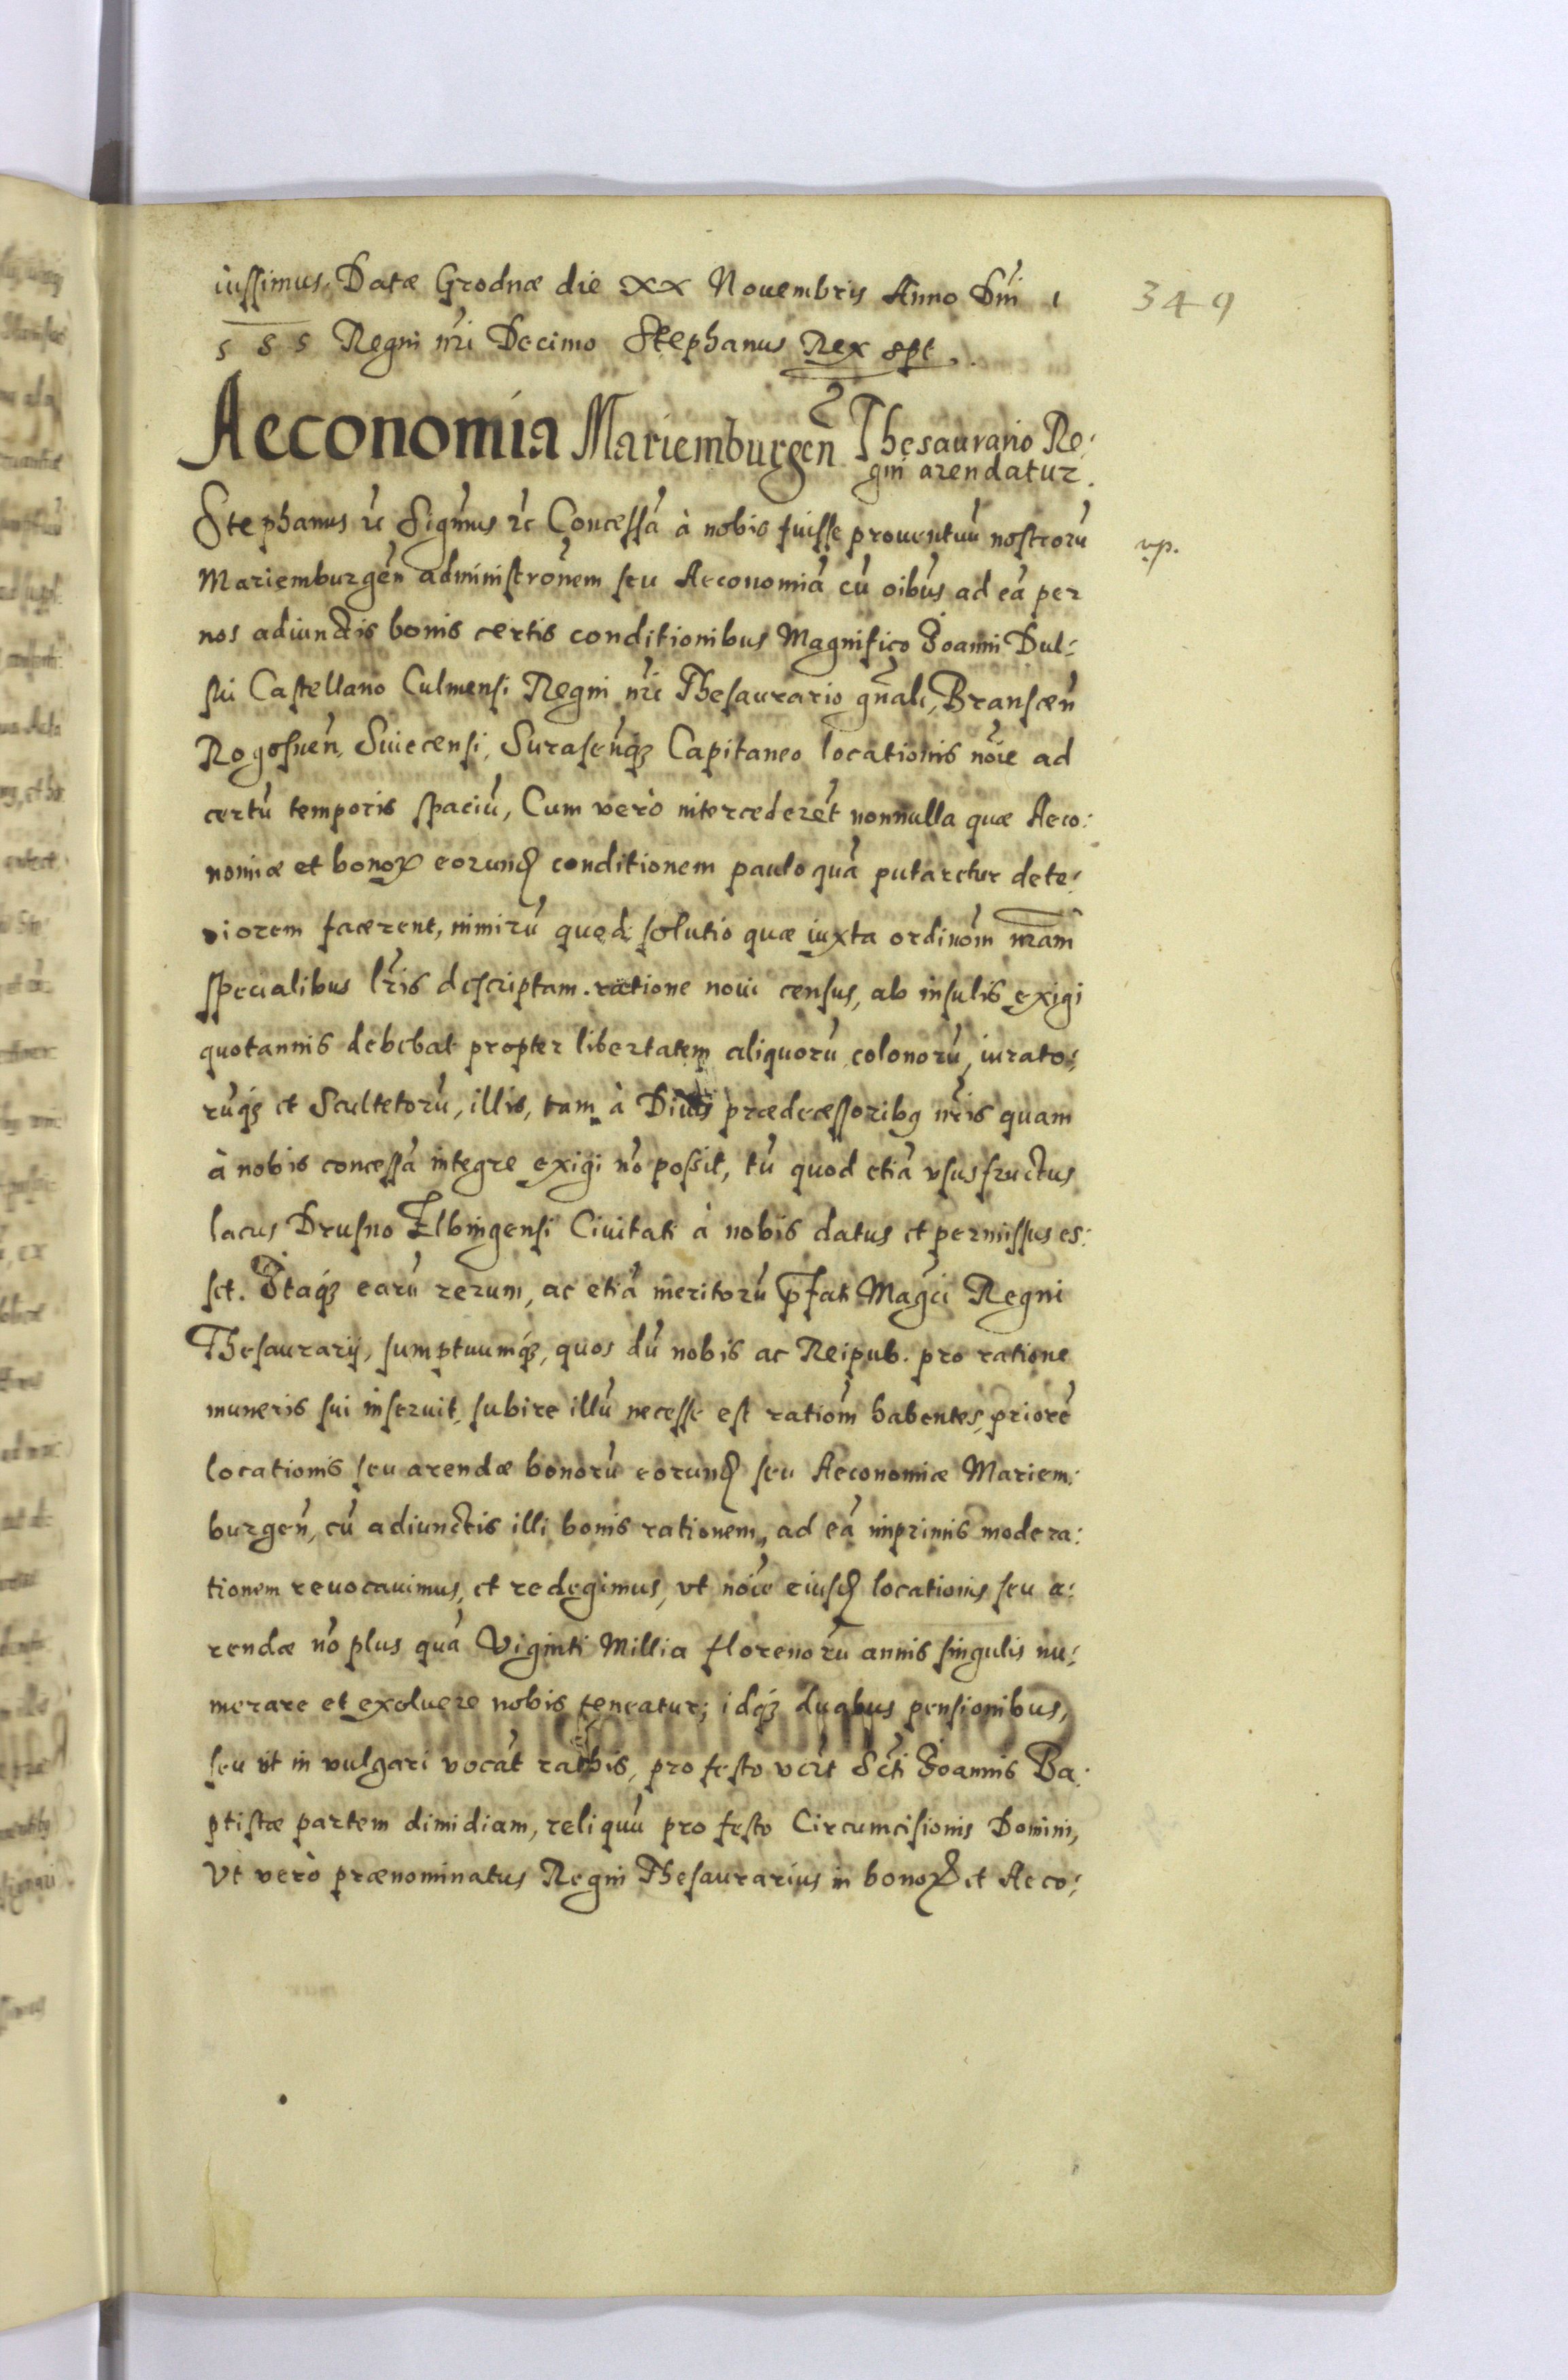 349
iussimus. Datæ Grodnæ die XX Nouembris Anno Dńi 1
5 8 5 Regni nŕi Decimo Stephanus Rex sṕt.
Aeconomia Mariemburgeń Thesaurario Re:
gni arendatur.
Stephanus ƺc Sigńus ƺc Concessá à nobis fuisse prouentuú nostrorú
vp.
Mariemburgeń administrońem seu Aeconomiá cú oíbus ad eá per
nos adiunctis bonis certis conditionibus Magnifico Joanni Dul:
ski Castellano Culmensi Regni nŕi Thesaurario gńali, Bransceń
Rogosneń, Suiecensi, Suraseńqȝ Capitaneo locationis nóie ad
certú temporis spaciú, Cum verò intercederét nonnulla quæ Aeco:
nomiæ et bonoꝝ eorundꝫ conditionem paulo quá putaretur dete:
riorem facerent, nimirú quod solutio quæ iuxta ordinoḿ nr̃am
specialibus lŕis descriptam ratione noui census, ab insulis exigi
quotannis debebat propter libertatem aliquorú colonorú, iurato:
rúqȝ et Scultetorú, illis, tam à Diuis prædecessoribꝯ nŕis quam
à nobis concessá integre exigi nó possit, tú quod etiá vsusfructus
lacus Drusno Elbingensi Ciuitati à nobis datus et permissus es:
set. Itaqȝ earú rerum, ac etiá meritorú p̃fati Magći Regni
Thesaurarij, sumptuumqȝ, quos dú nobis ac Reipub. pro ratione
muneris sui inseruit, subire illú necesse est ratioḿ habentes, prioré
locationis seu arendæ bonorú eorundꝫ seu Aeconomiæ Mariem:
burgeń, cú adiunctis illi bonis rationem, ad eá inprimis modera:
tionem reuocauimus, et redegimus, vt nóie eiusdꝫ locationis seu a:
rendæ nó plus quá Viginti Millia florenorú annis singulis nu:
merare et exoluere nobis teneatur; idqȝ duabus pensionibus,
seu vt in vulgari vocát rathis, pro festo Sćti Joannis Ba:
ptistæ partem dimidiam, reliquú pro festo Circumcisionis Domini,
Vt verò prænominatus Regni Thesaurarius in bonoꝝ et Aeco: